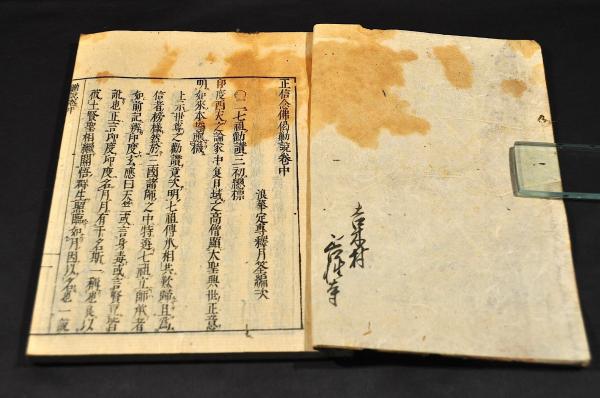 村
寺
正信念佛偈勧説卷中
浪華定專釋月筌編次
〇二七祖勧讃三初總標
印度西天之論家中夏日域之高僧顯大聖興世正意
明如來本誓應機
上示世尊之勧讃竟次明七祖傳承相共敎歸且爲
信者榜樣然於三國諸師之中特 七祖立師承者
如前記 印度玄應曰天竺或言身毒或言賢豆皆
訛也正言印度印度名月月有千名斯一稱也良以
彼土賢聖相繼開悟群生照臨如月因以名也一說